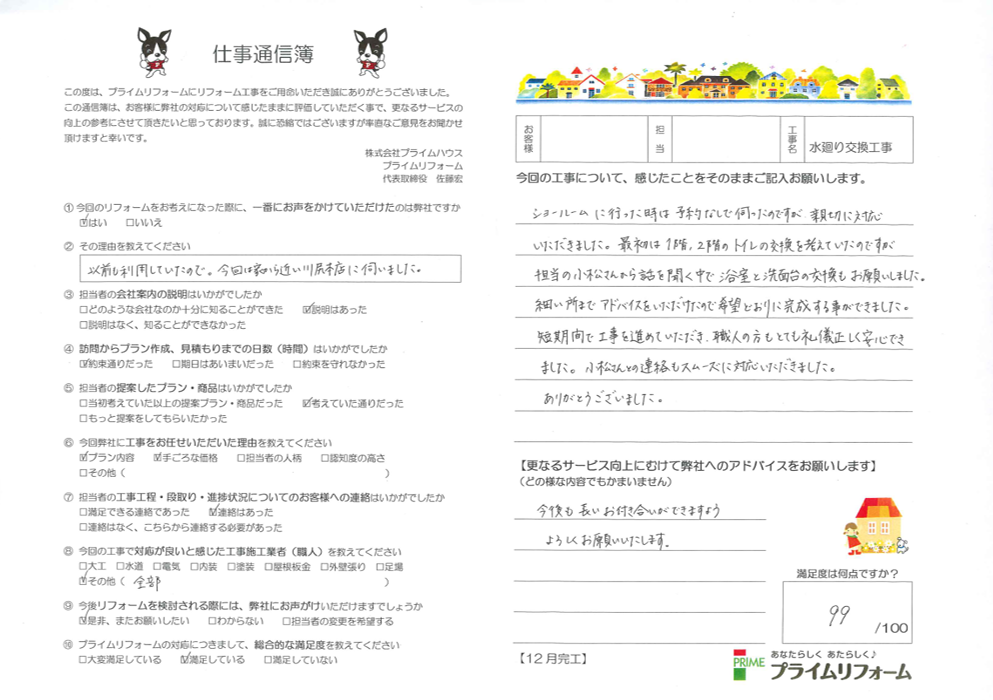 仕事通信簿
この度は、プライムリフォームにリフォーム工事をご用命いただき誠にありがとうございました。
この通信簿は、お客様に弊社の対応について感じたままに評価していただく事で、更なるサービスの
向上の参考にさせて頂きたいと思っております。誠に恐縮ではございますが率直なご意見をお聞かせ
頂けますと幸いです。
株式会社プライムハウス
プライムリフォーム
代表取締役 佐藤宏
① 今回のリフォームをお考えになった際に、一番にお声をかけていただけたのは弊社ですか
☑はい □いいえ
② その理由を教えてください
以前も利用していたので。今回は家から近い川尻本店に伺いました。
③ 担当者の会社案内の説明はいかがでしたか
□どのような会社なのか十分に知ることができた ☑説明はあった
□説明はなく、知ることができなかった
④ 訪問からプラン作成、見積もりまでの日数（時間）はいかがでしたか
☑約束通りだった □期日はあいまいだった □約束を守れなかった
⑤ 担当者の提案したプラン・商品はいかがでしたか
□当初考えていた以上の提案プラン・商品だった ☑考えていた通りだった
□もっと提案をしてもらいたかった
⑥ 今回弊社に工事をお任せいただいた理由を教えてください
☑プラン内容 ☑手ごろな価格 □担当者の人柄 □認知度の高さ
□その他（ ）
⑦ 担当者の工事工程・段取り・進捗状況についてのお客様への連絡はいかがでしたか
□満足できる連絡であった ☑連絡はあった
□連絡はなく、こちらから連絡する必要があった
⑧ 今回の工事で対応が良いと感じた工事施工業者（職人）を教えてください
□大工 □水道 □電気 □内装 □塗装 □屋根板金 □外壁張り □足場
☑その他（ 全部 ）
⑨ 今後リフォームを検討される際には、弊社にお声がけいただけますでしょうか
☑是非、またお願いしたい □わからない □担当者の変更を希望する
⑩ プライムリフォームの対応につきまして、総合的な満足度を教えてください
□大変満足している ☑満足している □満足していない
お客様 担当 工事名 水廻り交換工事
今回の工事について、感じたことをそのままご記入お願いします。
ショールームに行った時は予約なしで伺ったのですが、親切に対応
いただきました。最初は1階,2階のトイレの交換を考えていたのですが
担当の小松さんから話を聞く中で浴室と洗面台の交換もお願いしました。
細い所までアドバイスをいただけたので希望どおりに完成する事ができました。
短期間で工事を進めていただき、職人の方もとても礼儀正しく安心でき
ました。小松さんとの連絡もスムーズに対応いただきました。
ありがとうございました。
【更なるサービス向上にむけて弊社へのアドバイスをお願いします】
（どの様な内容でもかまいません）
今後も長いお付き合いができますよう
よろしくお願いいたします。
満足度は何点ですか？
99 /100
【12月完工】
PRIME
あなたらしく あたらしく♪
プライムリフォーム